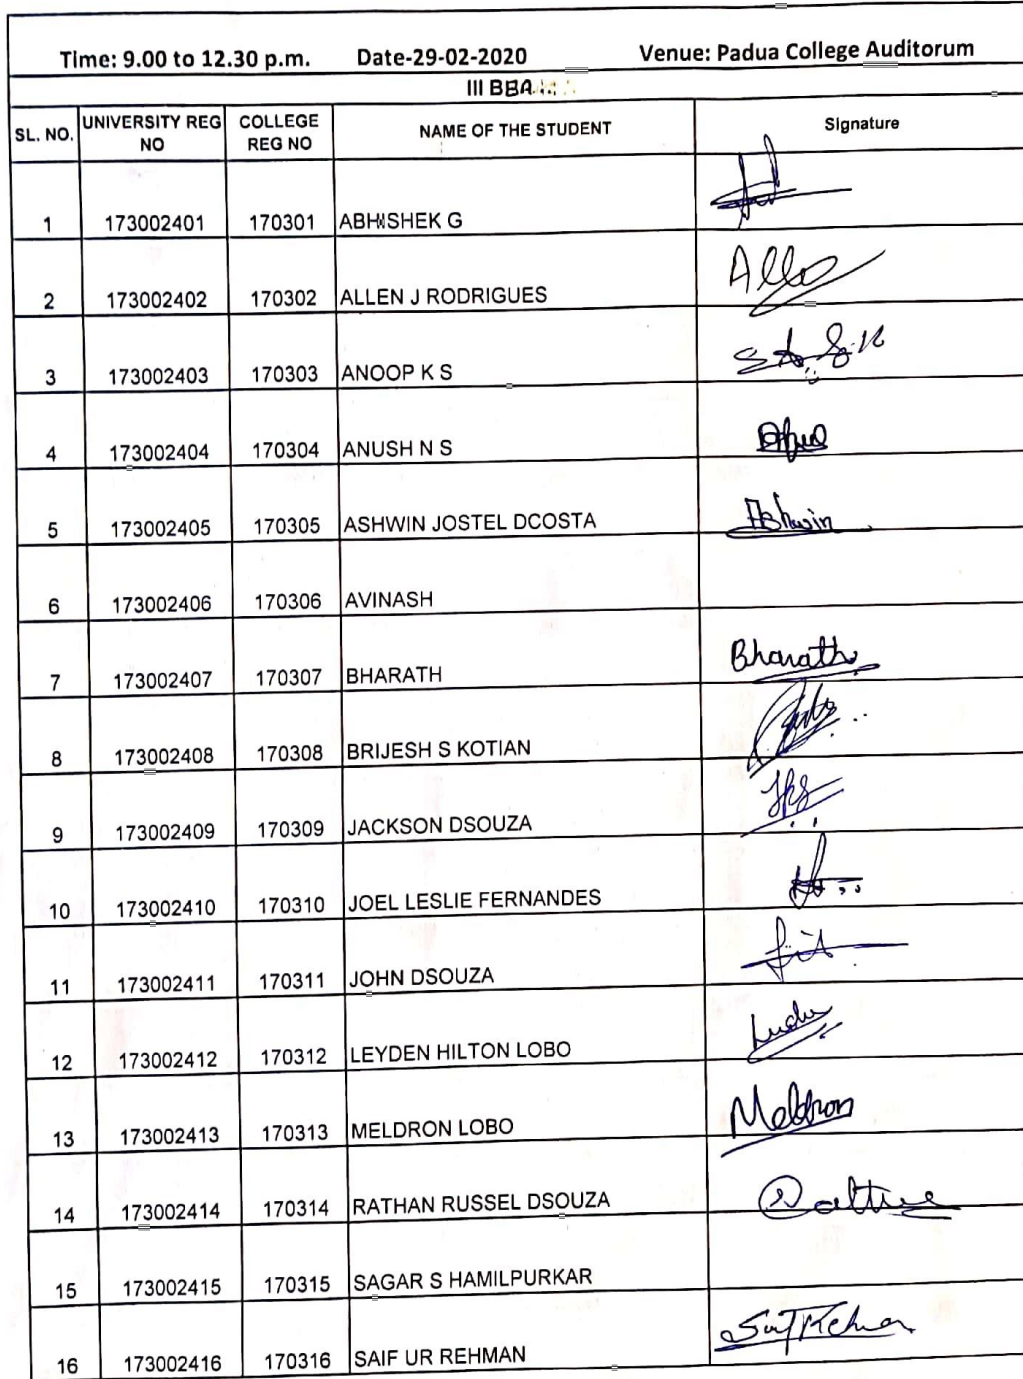 Time: 9.00 to 12.30 p.m. Date-29-02-2020 Venue: Padua College Auditorum
III BBA
SL. NO. UNIVERSITY REG NO COLLEGE REG NO NAME OF THE STUDENT Signature
1 173002401 170301 ABHISHEK G
2 173002402 170302 ALLEN J RODRIGUES
3 173002403 170303 ANOOP K S
4 173002404 170304 ANUSH N S
5 173002405 170305 ASHWIN JOSTEL DCOSTA Ashwin
6 173002406 170306 AVINASH
7 173002407 170307 BHARATH Bharath
8 173002408 170308 BRIJESH S KOTIAN
9 173002409 170309 JACKSON DSOUZA
10 173002410 170310 JOEL LESLIE FERNANDES
11 173002411 170311 JOHN DSOUZA
12 173002412 170312 LEYDEN HILTON LOBO
13 173002413 170313 MELDRON LOBO Meldron
14 173002414 170314 RATHAN RUSSEL DSOUZA
15 173002415 170315 SAGAR S HAMILPURKAR
16 173002416 170316 SAIF UR REHMAN